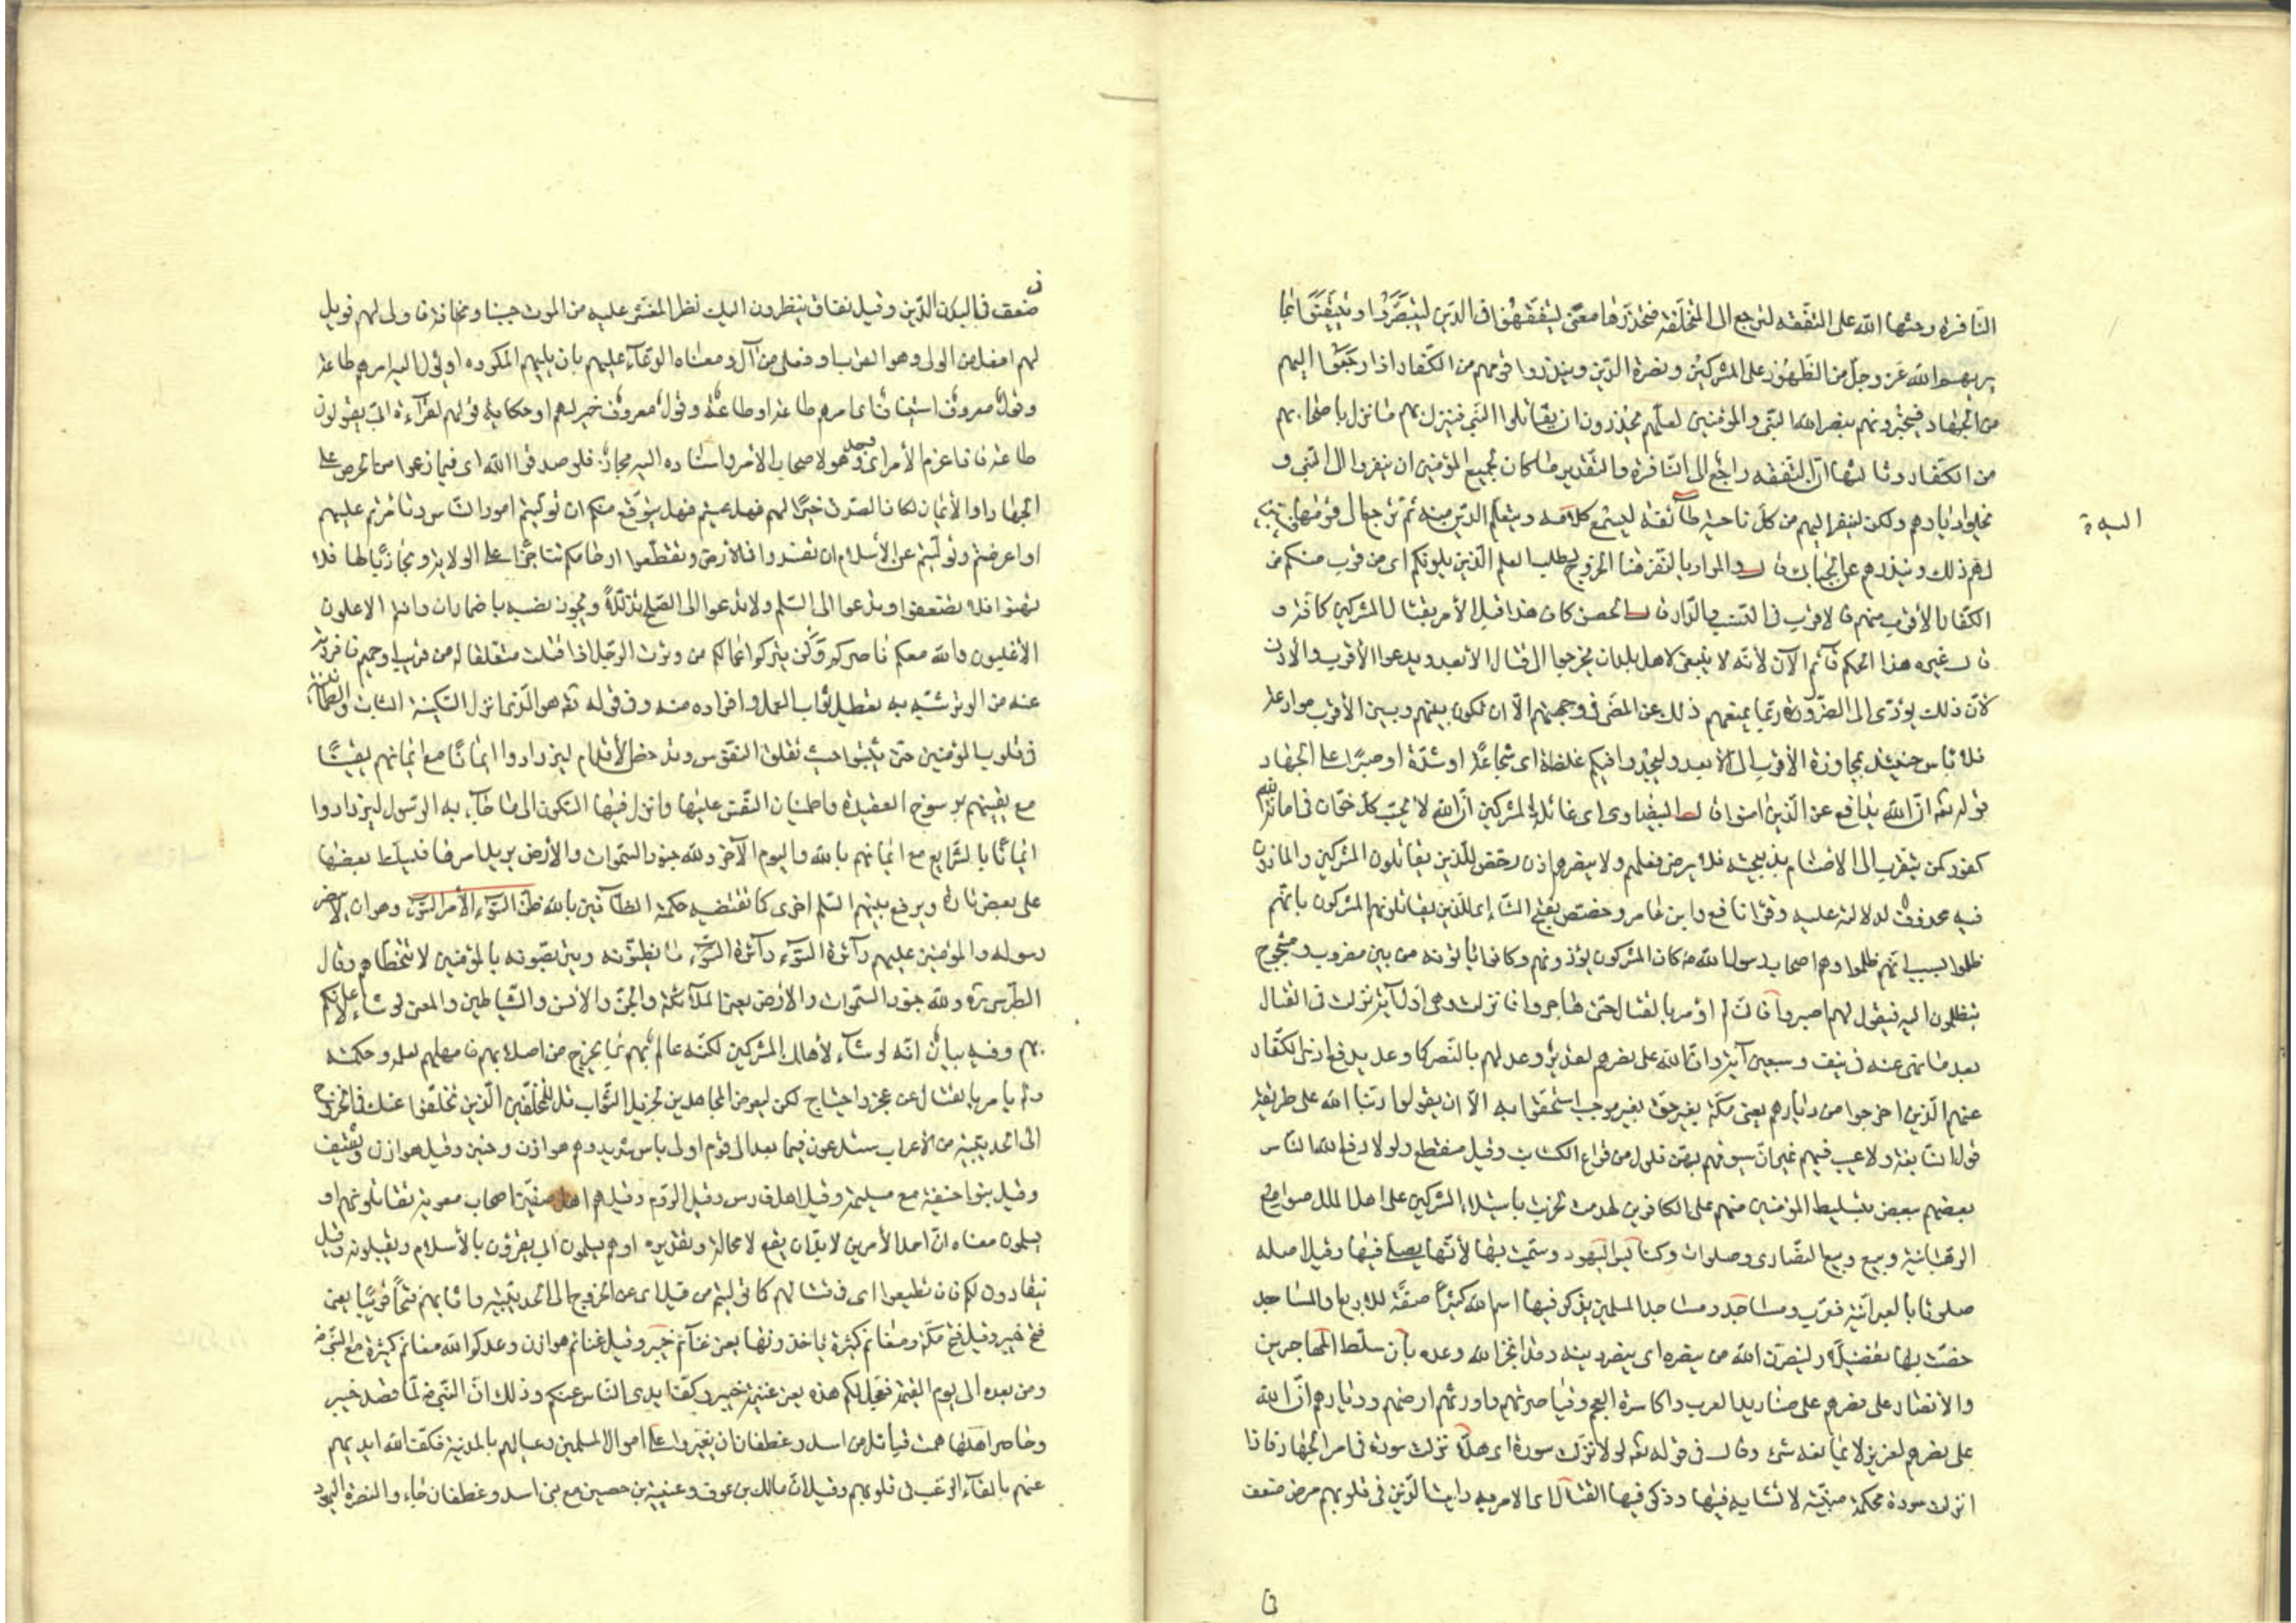 النّافرة وحثها الله على التفقه لترجع الى المتخلفة فتحذرها معنى ليتفقهوا فى الدّين ليتبصّروا ويتيقنوا بما
يريهم الله عزّ وجلّ من الظهور على المشركين ونصرة الدّين ولينذروا قومهم من الكفّار اذا رجعوا اليهم
من الجهاد فيخبرونهم بنصر الله النّبى والمؤمنين لعلّهم يحذرون ان يقاتلوا النّبى فينزل بهم ما نزل باصحابهم
من الكفّار وثالثها انّ التّفقه راجع الى النّافرة والتقدير ما كان لجميع المؤمنين ان ينفروا الى النّبى و
يخلوا ديارهم ولكن لينفر اليهم من كلّ ناحية طآئفة ليستمع كلامه ويتعلّم الدّين منه ثمّ ترجع الى قومها فتبيّن
لهم ذلك وينذرهم عن الجبائى قال والمراد بالنّفر هنا الخروج لطلب العلم الّذين يلونكم اى من قرب منكم من
الكفّار الأقرب منهم فالاقرب فى النّسب والدّار قال الحسن كان هذا قبل الأمر بقتال المشركين كافّة و
قال غيره هذا الحكم قآئم الآن لأنّه لا ينبغى لاهل بلد ان يخرجوا الى قتال الأبعد ويدعوا الأقرب والأدنى
لأنّ ذلك يؤدّى الى الضّرر وربّما يمنعهم ذلك عن المضىّ فى وجهتهم الّا ان تكون بينهم وبين الأقرب موادعة
فلا بأس حينئذ بمجاوزة الأقرب الى الأبعد وليجدوا فيكم غلظة اى شجاعة او شدّة او صبرًا على الجهاد
قوله تعه انّ الله يدافع عن الّذين امنوا قال البيضاوى اى غائلة المشركين انّ الله لا يحبّ كلّ خوّان فى امانة الله
كفور كمن يتقرب الى الاصنام بذبيحته فلا يرضى فعلهم ولا ينصرهم اذن رخّص للّذين يقاتلون المشركين والمأذون
فيه محذوف لدلالته عليه وقرأ نافع وابن عامر وحفص بفتح التّاء اى للّذين يقاتلونهم المشركون بانّهم
ظلموا بسبب انّهم ظلموا وهم اصحاب رسول الله ص كان المشركون يؤذونهم وكانوا يأتونه من بين مضروب ومشجوج
يتظلّمون اليه فيقول لهم اصبروا فانّى لم اؤمر بالقتال حتّى هاجروا فانزلت وهى اوّل آية نزلت فى القتال
بعد ما نهى عنه فى نيف وسبعين آية وانّ الله على نصرهم لقدير وعد لهم بالنّصر كما وعد بدفع اذى الكفّار
عنهم الّذين اخرجوا من ديارهم يعنى مكّة بغير حقّ بغير موجب استحقّوا به الّا ان يقولوا ربّنا الله على طريقة
قول النّابغة ولا عيب فيهم غير انّ سيوفهم بهنّ فلول من قراع الكتائب وقيل منقطع ولولا دفع الله النّاس
بعضهم ببعض بتسليط المؤمنين منهم على الكافرين لهدمت لخربت باستيلاء المشركين على اهل الملل صوامع
الرّهبانية وبيع وبيع النّصارى وصلوات وكنائس اليهود وسمّيت بها لأنّها يصلّى فيها وقيل اصله
صلوثا بالعبرانيّة فعرّب ومساجد ومساجد المسلمين يذكر فيها اسم الله كثيرًا صفة للاربع او المساجد
خصّت بها تفضيلًا ولينصرنّ الله من ينصره اى ينصر دينه وقد انجز الله وعده بأن سلّط المهاجرين
والأنصار على نصرهم على صناديد العرب واكاسرة العجم وقياصرتهم واورثهم ارضهم وديارهم انّ الله
على نصرهم لعزيز لا يمانعه شئ وقال فى قوله تعه لولا نزّلت سورة اى هلّا نزلت سورة فى امر الجهاد فاذا
انزلت سورة محكمة مبيّنة لا تشابه فيها وذكر فيها القتال اى الامر به رايت الّذين فى قلوبهم مرض ضعف
البدو
ضعف فى الدّين وقيل نفاق ينظرون اليك نظر المغشىّ عليه من الموت جبنا ومخافة فاولى لهم فويل
لهم افعل من الولى وهو القرب او فعلى من آل ومعناه الدّعآء عليهم بان يليهم المكروه او يؤل اليه امرهم طاعة
وقول معروف استيناف اى امرهم طاعة او طاعة وقول معروف خير لهم او حكاية قولهم لقرآءة ابىّ يقولون
طاعة فاذا عزم الأمر اى جدّ وهو لاصحاب الأمر واسناده اليه مجاز فلو صدقوا الله اى فيما زعموا من الحرص على
الجهاد او الأيمان لكان الصّدق خيرًا لهم فهل عسيتم فهل يتوقّع منكم ان توليتم امور النّاس وتأمّرتم عليهم
او اعرضتم وتولّيتم عن الأسلام ان تفسدوا فى الأرض وتقطّعوا ارحامكم تناجزًا على الولاية وتجاذبًا لها فلا
تهنوا فلا تضعفوا وتدعوا الى السّلم ولا تدعوا الى الصّلح تذلّلًا ويجوز نصبه باضمار ان وانتم الاعلون
الأغلبون والله معكم ناصركم ولن يتركم اعمالكم من وترت الرّجل اذا قتلت متعلّقا له من قريب او حميم فافردته
عنه من الوتر شبّه به تعطيل ثواب العمل وافراده منه وفى قوله تعه هو الّذى انزل السّكينة الثبات والطمأنينة
فى قلوب المؤمنين حتّى يثبتوا حيث تقلق النّفوس وتدحض الأقدام ليزدادوا ايمانًا مع ايمانهم يقينًا
مع يقينهم برسوخ العقيدة واطمينان النّفس عليها وانزل فيها السّكون الى ما جآء به الرّسول ليزدادوا
ايمانًا بالشّرايع مع ايمانهم بالله واليوم الآخر ولله جنود السّموات والأرض يدبّر امرها فيسلّط بعضها
على بعض تارة ويوقع بينهم السّلم اخرى كما تقتضيه حكمته الظّآنّين بالله ظنّ السّوء الأمر السّوء وهو ان لا ينصر
رسوله والمؤمنين عليهم دآئرة السّوء دآئرة السّوء ما يظنّونه ويتربّصونه بالمؤمنين لا يتخطّاهم وقال
الطّبرسى ره ولله جنود السّموات والأرض يعنى الملآئكة والجنّ والانس والشّياطين والمعنى لو شاء لاعانكم
بهم وفيه بيان انّه لو شآء لأهلك المشركين لكنّه عالم بهم بما يخرج من اصلابهم فامهلهم لعلمه وحكمته
ولم يأمر بالقتال عن عجز واحتياج لكن ليعرض المجاهدين لجزيل الثّواب قل للمخلّفين الّذين تخلّفوا عنك فى الخروج
الى الحديبية من الأعراب ستدعون فيما بعد الى قوم اولى بأس شديد وهم هوازن وحنين وقيل هوازن وثقيف
وقيل بنوا حنيفة مع مسيلمة وقيل اهل فارس وقيل الرّوم وقيل هم اهل صفّين اصحاب معوية تقاتلونهم او
يسلمون معناه انّ احد الأمرين لا بدّ ان يقع لا محالة وتقديره او هم يسلمون اى يقرّون بالأسلام ويقبلونه وقيل
ينقادون لكم فان تطيعوا اى فى قتالهم كما تولّيتم من قبل اى عن الخروج الى الحديبية واثابهم فتحًا قريبًا يعنى
فتح خيبر وقيل فتح مكّة ومغانم كثيرة يأخذونها يعنى غنآئم خيبر وقيل غنائم هوازن وعدكم الله مغانم كثيرة مع النّبى ص
ومن بعده الى يوم القيمة فعجّل لكم هذه يعنى غنيمة خيبر وكفّ ايدى النّاس عنكم وذلك انّ النّبى ص لمّا قصد خيبر
وحاصر اهلها همّت قبائل من اسد وغطفان ان يغيروا على اموال المسلمين وعيالهم بالمدينة فكفّ الله ايديهم
عنهم بالقآء الرّعب فى قلوبهم وقيل انّ مالك بن عوف وعيينة بن حصين مع بنى اسد وغطفان جاءوا لنصرة اليهود